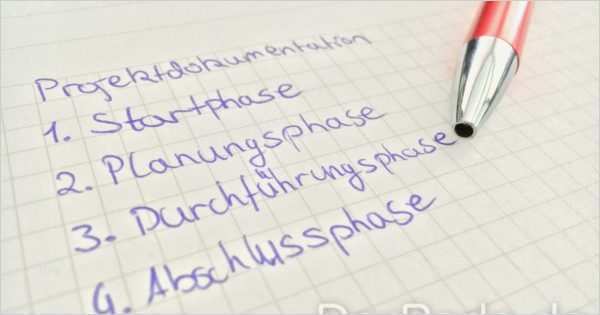 Projektdokumentation
1. Startphase
2. Planungsphase
3. Durchführungsphase
4. Abschlussphase